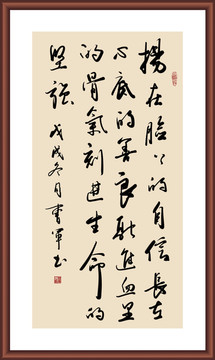 揚在臉上的自信長在
心底的善良融進血里
的骨氣刻進生命的
坚强
戊戌冬月書軍书